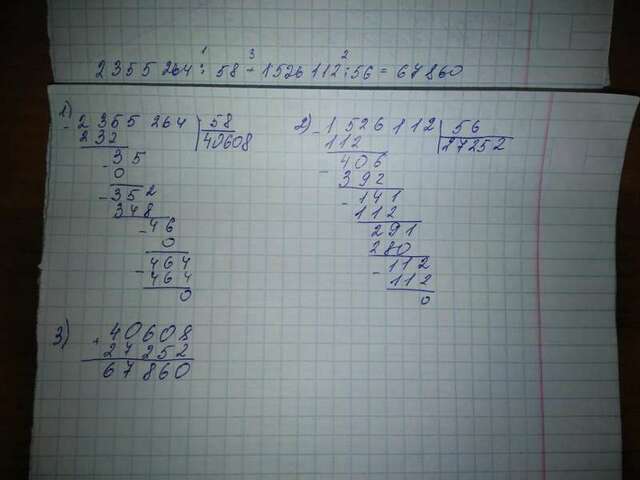 1 3 2
2355264 : 58 - 1526112 : 56 = 67860
1)
- 2355264 | 58
232 | 40608
- 35
0
- 352
348
- 46
0
- 464
464
0
2) - 1526112 | 56
112 | 27252
- 406
392
- 141
112
291
280
- 112
112
0
3) + 40608
27252
67860